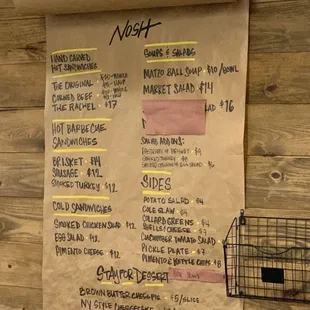 NOSH
HAND CARVED
HOT SANDWICHES
THE ORIGINAL
CORNED BEEF
THE RACHEL - $17
HOT BARBECUE
SANDWICHES
BRISKET - $14
SAUSAGE - $12
SMOKED TURKEY - $12
COLD SANDWICHES
SMOKED CHICKEN SALAD $12
EGG SALAD $12
PIMENTO CHEESE $12
SOUPS & SALADS
MATZO BALL SOUP - $10/BOWL
MARKET SALAD $14
$16
SALAD ADD ONS:
SMOKED TURKEY
SIDES
POTATO SALAD - $4
COLE SLAW
COLLARD GREENS
SHELLS & CHEESE
CUCUMBER TOMATO SALAD
PICKLE PLATE
PIMENTO & KETTLE CHIPS $8
STAY FOR DESSERT
BROWN BUTTER CHESS PIE - $5/SLICE
NY STYLE CHEESECAKE